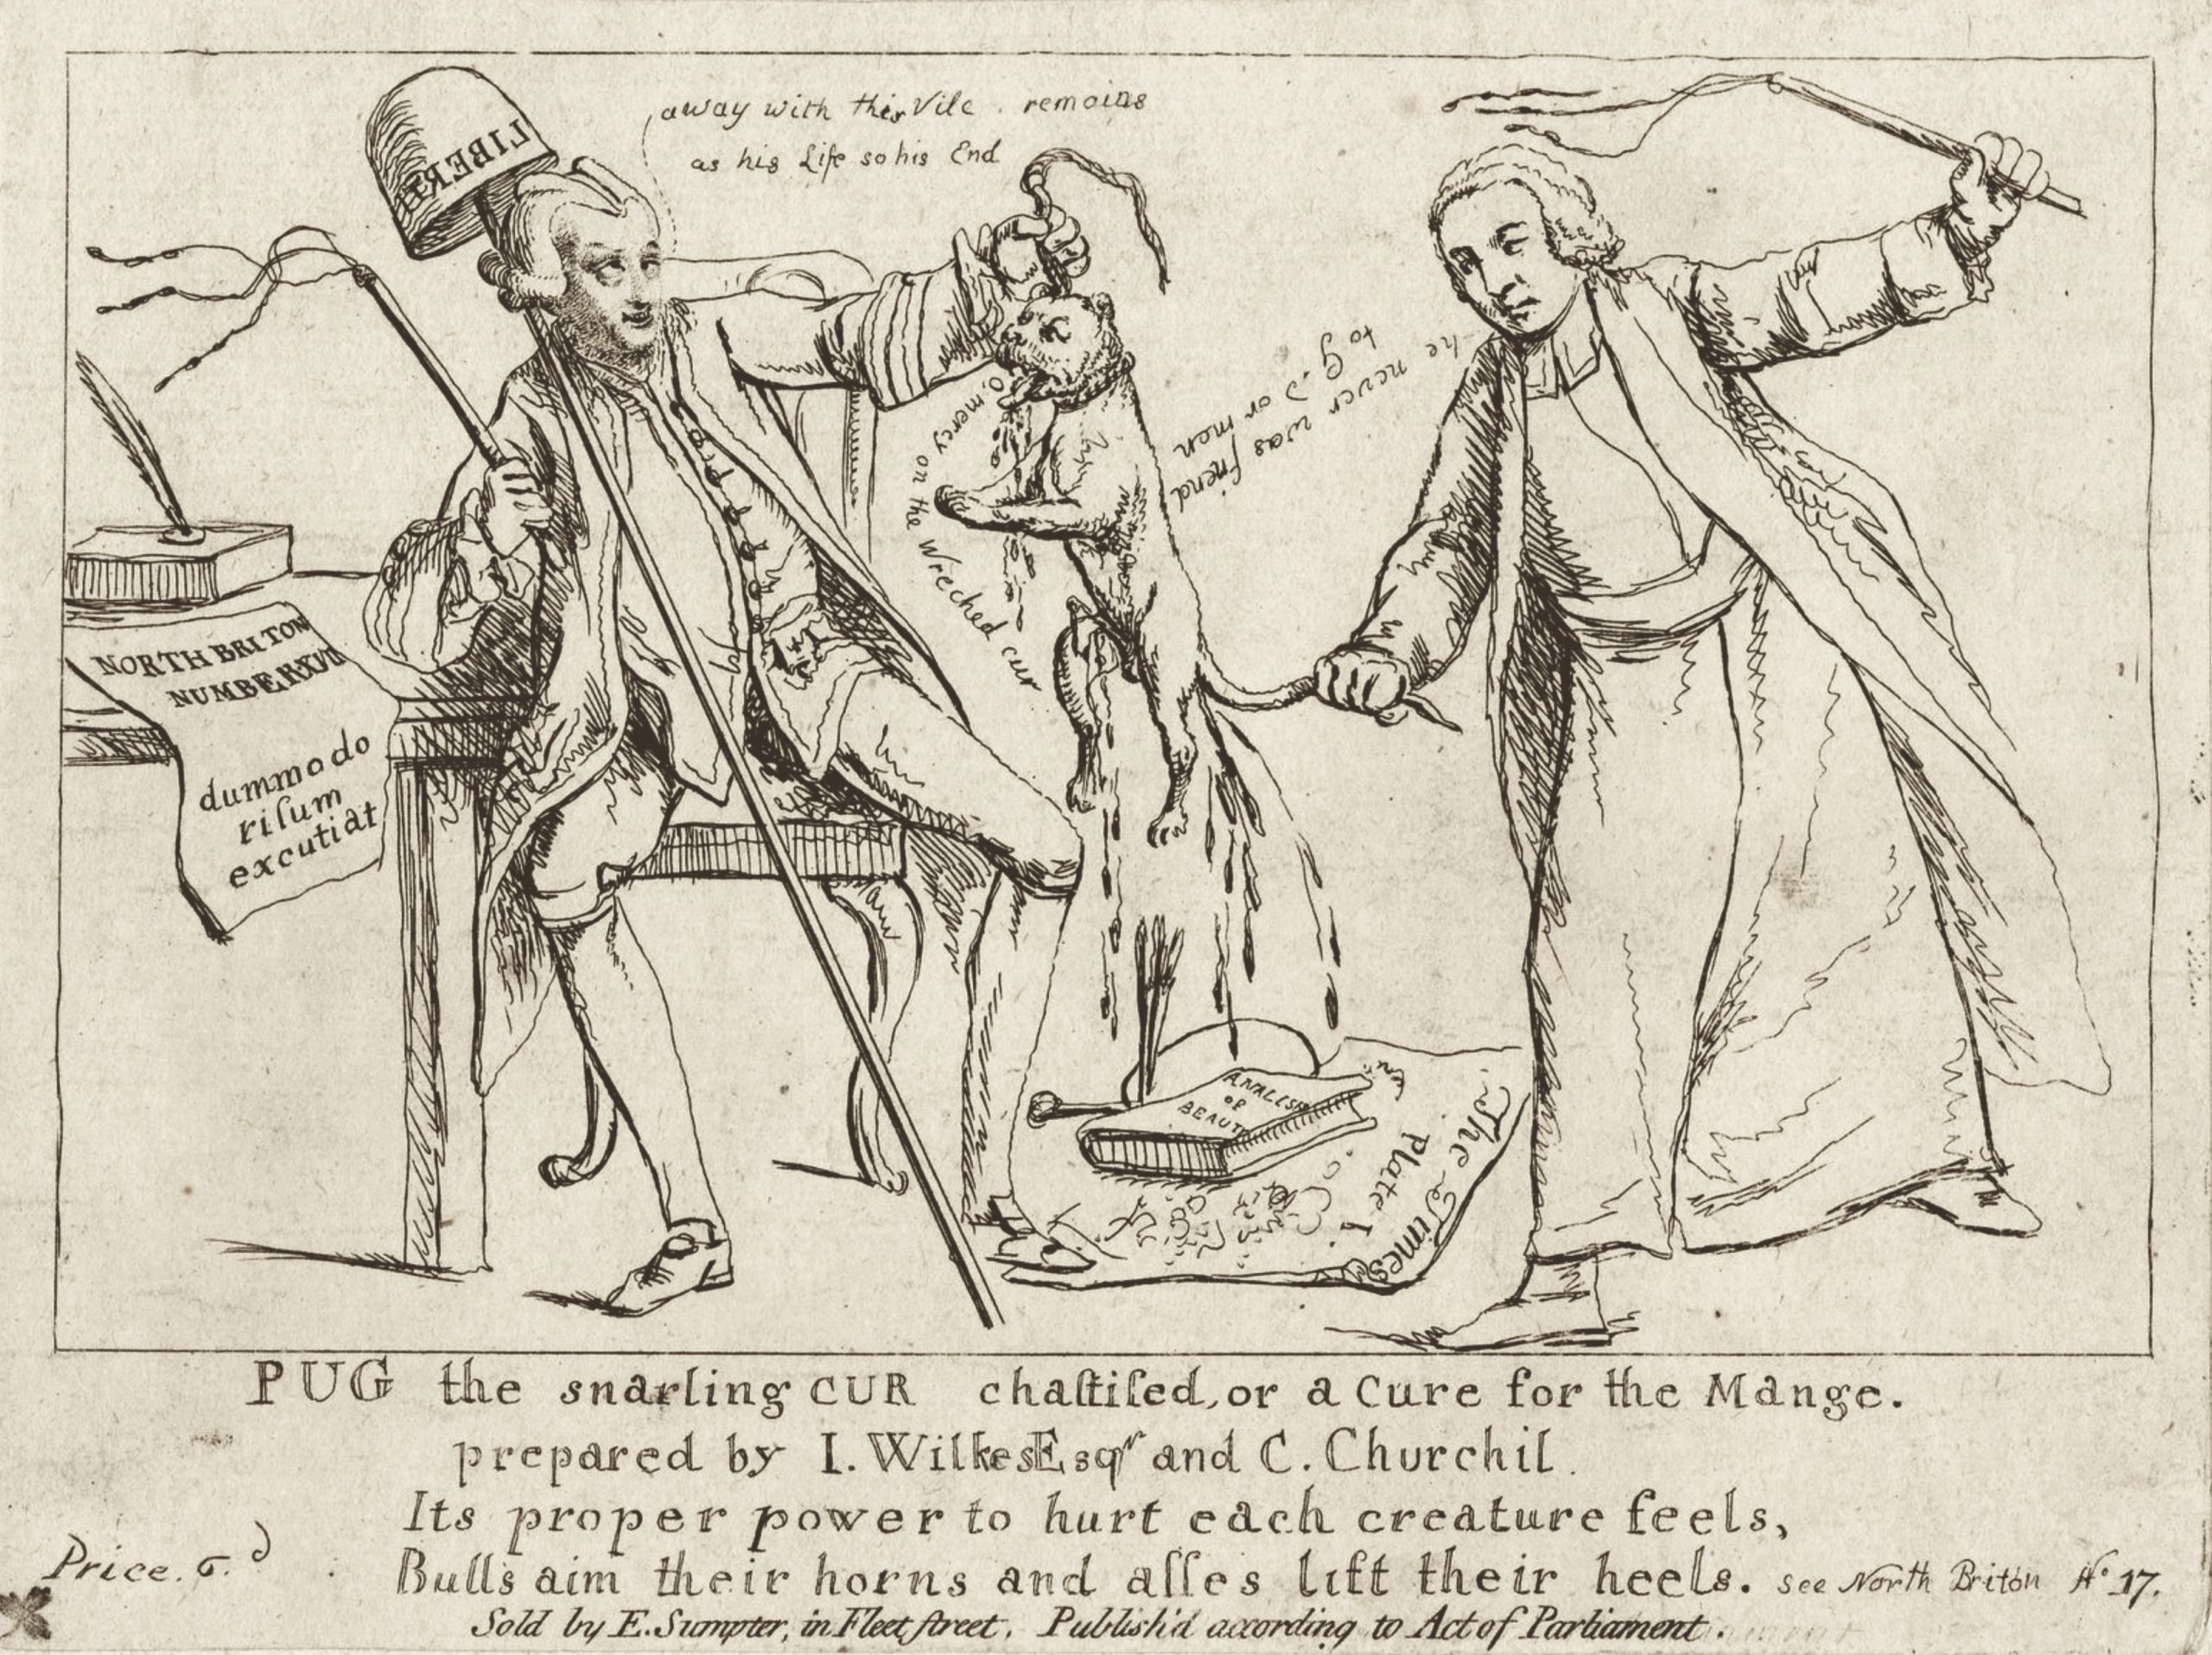 LIBERTY
away with this Vile remains
as his Life so his End
O mercy on the Wreched cur
he never was friend
to G.D or men
NORTH BRITON
NUMBER XVII
dummodo
riſum
excutiat
ANALISIS
of
BEAUTY
The Times
Plate I.
PUG the snarling CUR chaſtiſed, or a Cure for the Mange.
prepared by I. Wilkes Esqr and C. Churchil.
Its proper power to hurt each creature feels,
Bulls aim their horns and aſſes lift their heels. see North Briton No 17.
Price. 6.d
Sold by E. Sumpter, in Fleet ſtreet. Publish'd according to Act of Parliament.